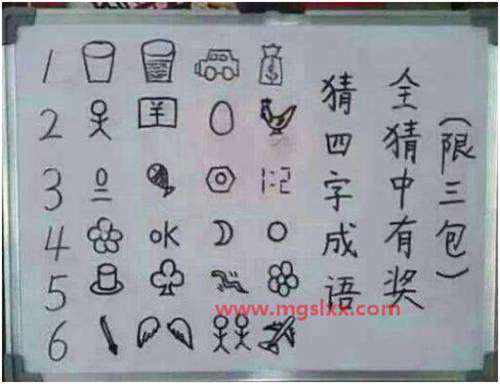 1 $
2 羊
3 1:2
4 OK
5
6
猜四字成语
全猜中有奖
(限三包)
www.mgslxx.com